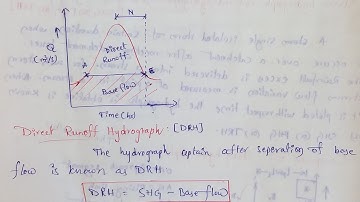 N
Q
(m³/s)
Direct
Runoff
A
B
Base flow
Time (hr)
Direct Runoff Hydrograph : [DRH]
The hydrograph aptain after seperation of base
flow is known as DRH
DRH = SHG - Base flow